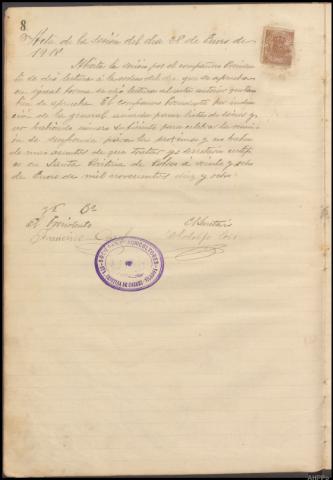 8
Acta de la sesión del dia 28 de Enero de
1918
Abierta la sesión por el compañero Presiden
te se dió lectura á la orden del dia que se aprueba
en igual forma se dió lectura al acta anterior y tam
bien se aprueba. El compañero Presidente por indi
cación de la general acuerda pasar lista de socios y
no habiendo número suficiente para celebrar la reunión
se suspende para la próxima y no habien
do mas asuntos de que tratar yo Secretario certifi
co en Santa Cristina de Cobres á veinte y ocho
de Enero de mil novecientos diez y ocho.
Vº Bº
El Presidente El Secretario
Francisco Adolfo
SOCIEDAD AGRICULTORES
CRISTINA DE COBRES - VILABOA
AHPPo